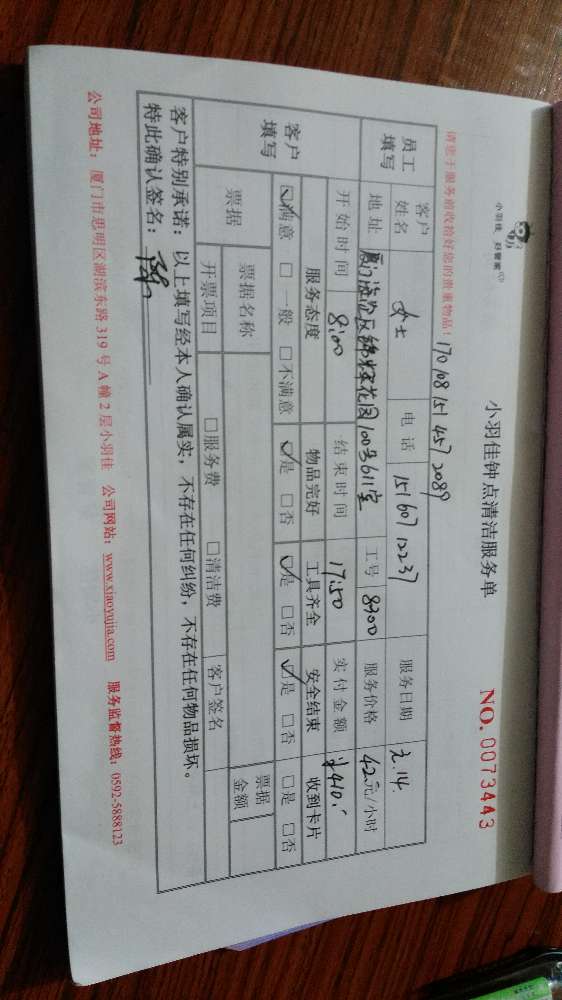 小羽佳 好管家
小羽佳钟点清洁服务单
NO. 0073443
请您于服务前收拾好您的贵重物品!
170108151 4572089
员工填写 客户姓名 女士 电话 15160712237 服务日期 2.14
地址 100号611室 工号 8700 服务价格 42元/小时
开始时间 8:00 结束时间 17:50 实付金额 ¥410.
客户填写 服务态度 物品完好 工具齐全 安全结束 收到卡片
☑满意 □一般 □不满意 ☑是 □否 ☑是 □否 ☑是 □否 □是 □否
票据 票据名称 票据金额
开票项目 □服务费 □清洁费 客户签名
客户特别承诺:以上填写经本人确认属实,不存在任何纠纷,不存在任何物品损坏。
特此确认签名:
公司地址:厦门市思明区湖滨东路319号A幢2层小羽佳 公司网站:www.xiaoyujia.com 服务监督热线:0592-5888123